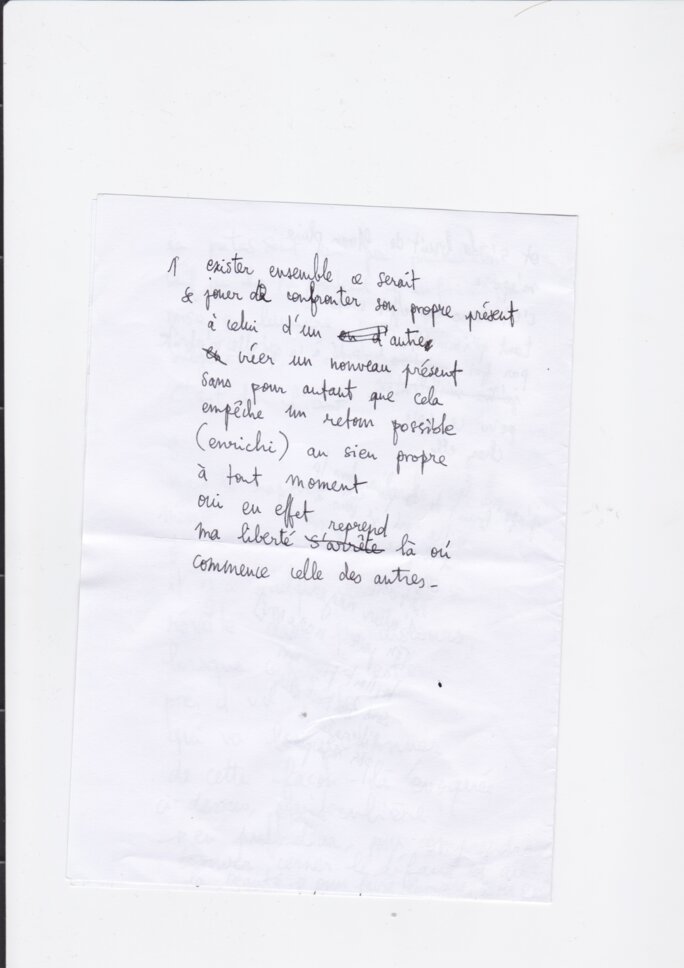 1 exister ensemble ce serait
se jouer de confronter son propre présent
à celui d'un autre
créer un nouveau présent
sans pour autant que cela
empêche un retour possible
(enrichi) au sien propre
à tout moment
oui en effet
reprend
ma liberté s'arrête là où
commence celle des autres_